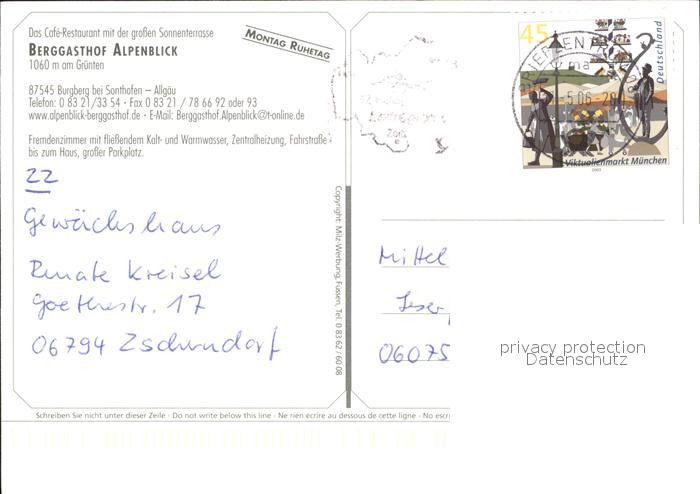 Das Café-Restaurant mit der großen Sonnenterrasse
BERGGASTHOF ALPENBLICK
1060 m am Grünten
MONTAG RUHETAG
87545 Burgberg bei Sonthofen – Allgäu
Telefon: 0 83 21/33 54 · Fax 0 83 21 / 78 66 92 oder 93
www.alpenblick-berggasthof.de · E-Mail: Berggasthof.Alpenblick@t-online.de
Fremdenzimmer mit fließendem Kalt- und Warmwasser, Zentralheizung, Fahrstraße
bis zum Haus, großer Parkplatz.
22
Gewächshaus
Renate Kreisel
Goethestr. 17
06794 Zschorndorf
Copyright: Milz-Werbung, Füssen, Tel. 0 83 62 / 60 08
45
Deutschland
BRIEFZENTRUM
Viktualienmarkt München
2003
Mittel
Leser
06075
privacy protection
Datenschutz
Schreiben Sie nicht unter dieser Zeile - Do not write below this line - Ne rien ecrire au dessous de cette ligne - No escri